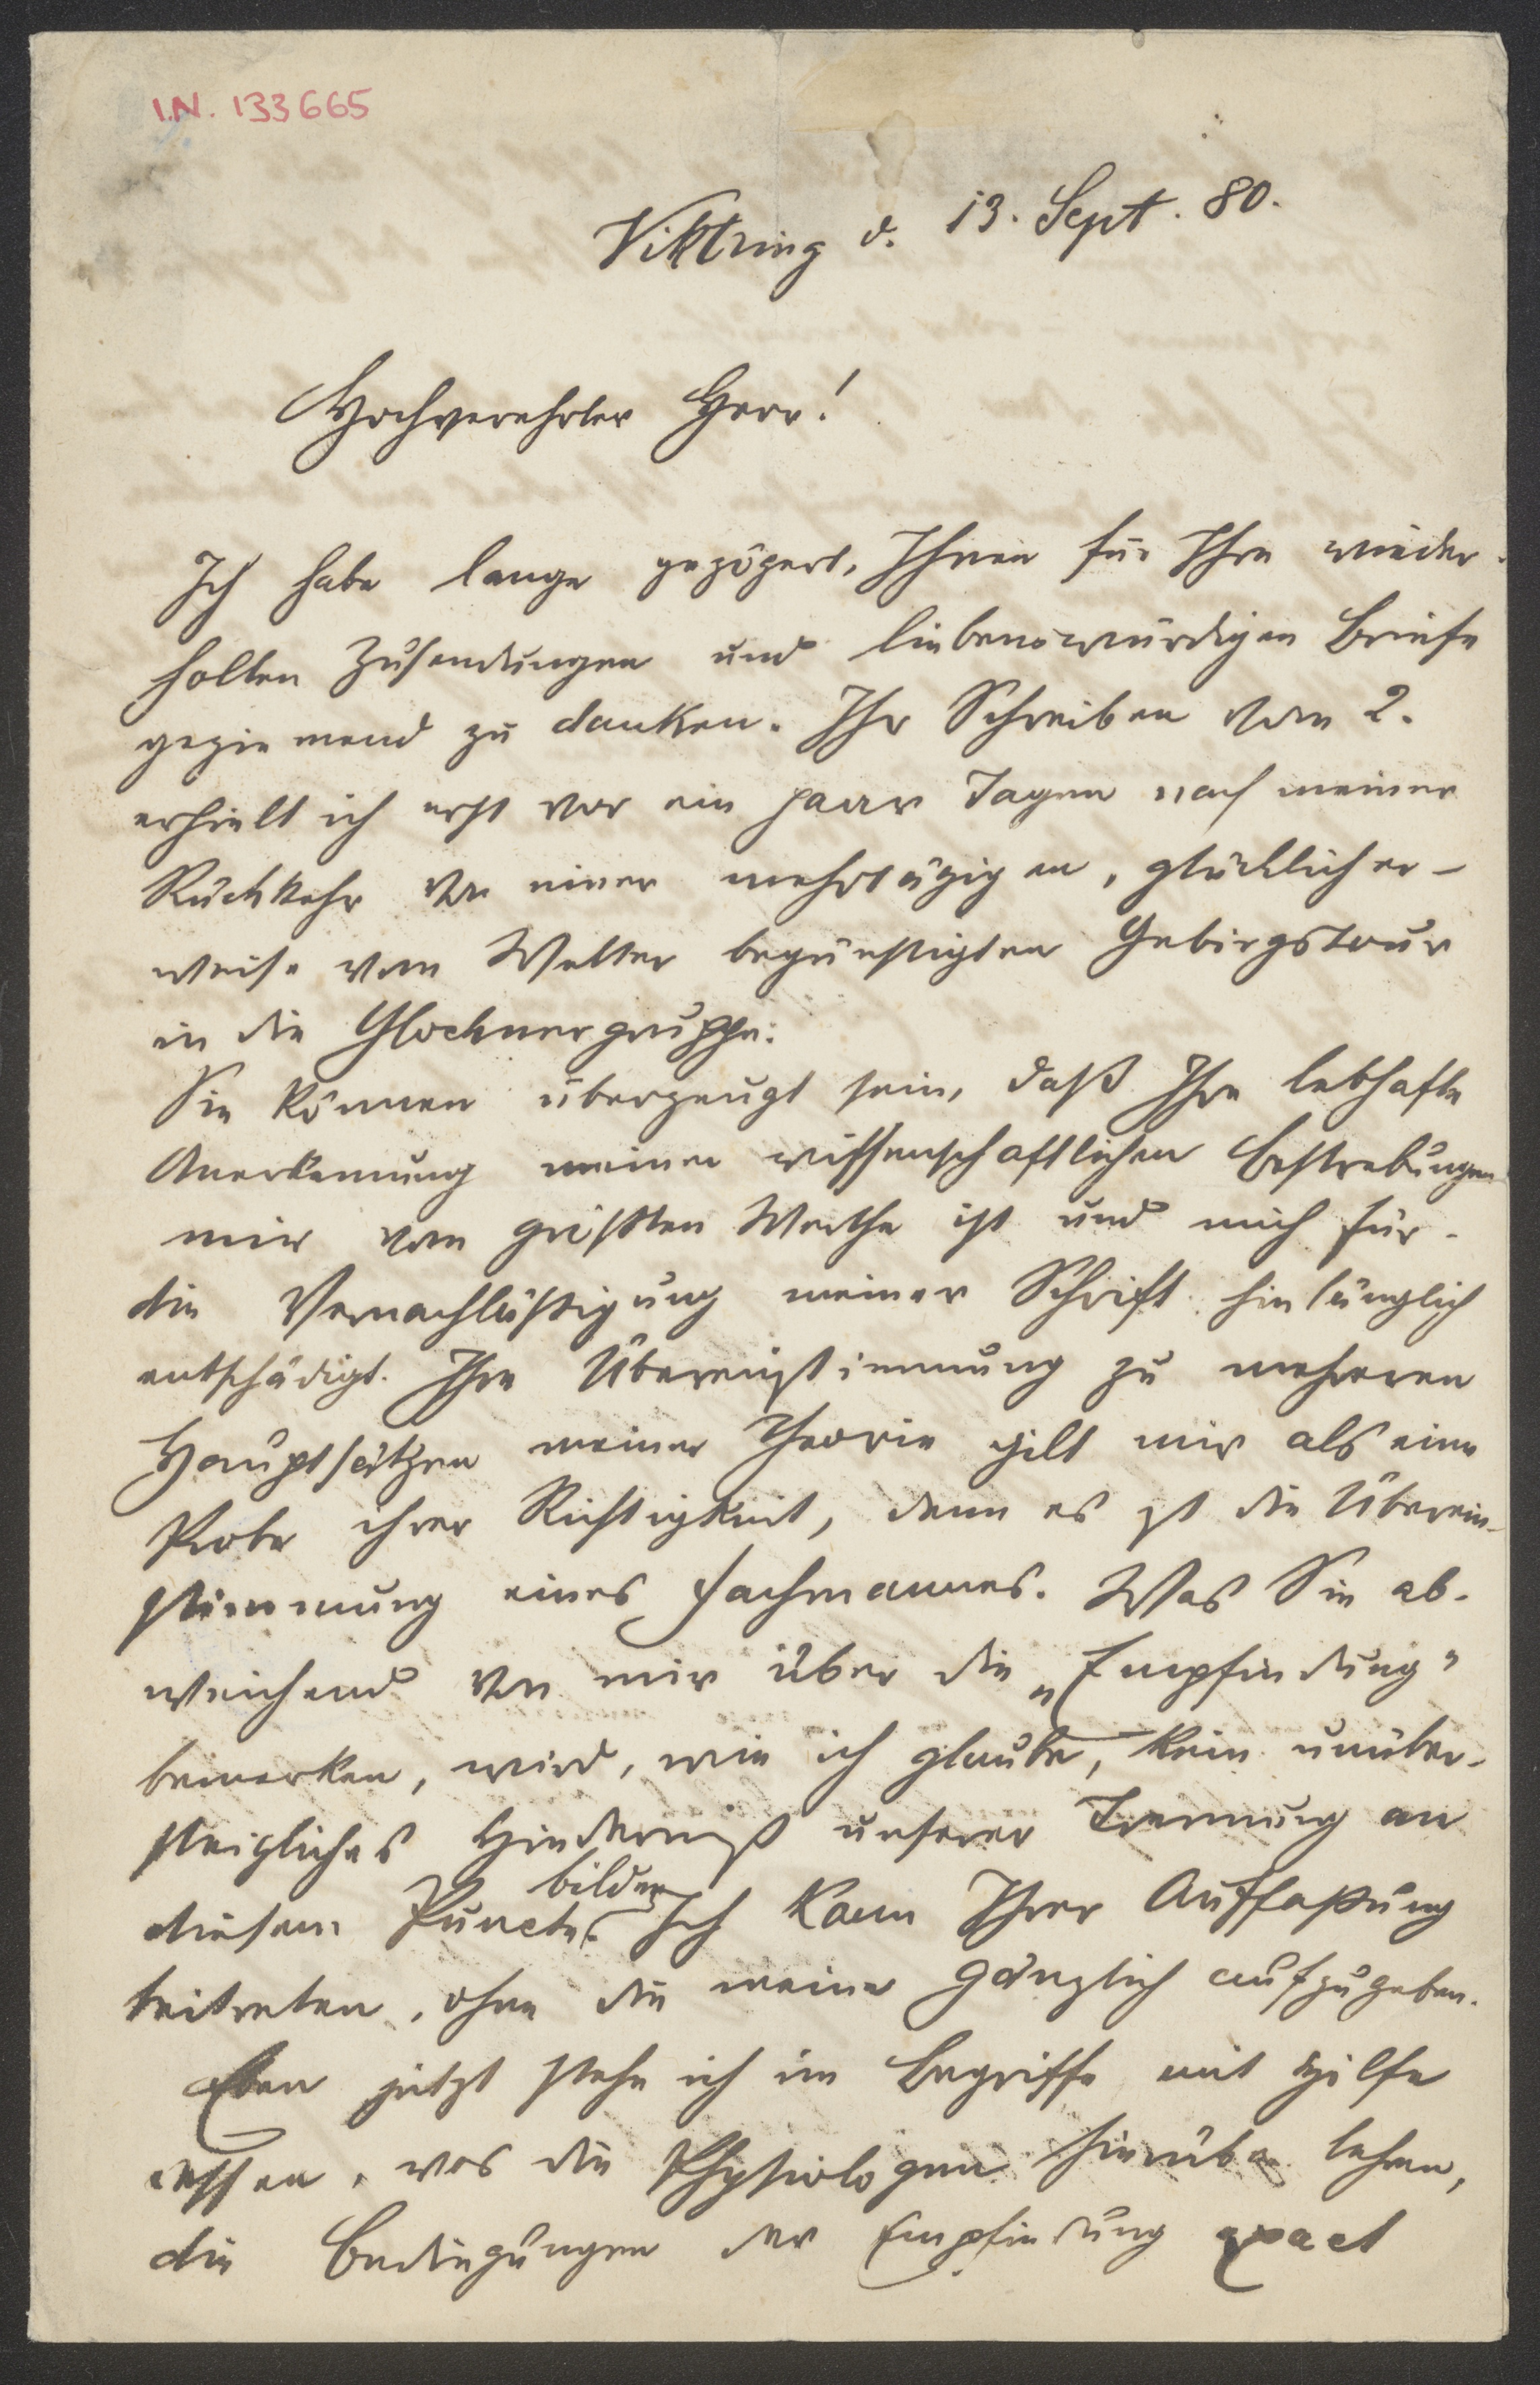 I.N. 133665
Viktring d. 13. Sept. 80.
Hochverehrter Herr!
Ich habe lange gezögert, Ihnen für Ihre wieder-
holten Zusendungen und liebenswürdigen Briefe
geziemend zu danken. Ihr Schreiben vom 2.
erhielt ich erst vor ein paar Tagen nach meiner
Rückkehr von einer mehrtägigen, glücklicher-
weise vom Wetter begünstigten Gebirgstour
in die Glocknergruppe.
Sie können überzeugt sein, daß Ihre lebhafte
Anerkennung meiner wissenschaftlichen Bestrebungen
mir vom größten Werthe ist und mich für
die Vernachläßigung meiner Schrift hinlänglich
entschädigt. Ihre Übereinstimmung zu mehreren
Hauptsätzen meiner Theorie gilt mir als eine
Probe ihrer Richtigkeit, denn es ist die Überein-
stimmung eines Fachmannes. Was Sie ab-
weichend von mir über die „Empfindung"
bemerken, wird, wie ich glaube, kein unüber-
steigliches Hinderniß unserer Trennung an
diesem Puncte bilden. Ich kann Ihrer Auffaßung
beitreten, ohne die meine gänzlich aufzugeben.
Eben jetzt stehe ich im Begriffe mit Hilfe
dessen, was die Physiologen hierüber lehren,
die Bedingungen der Empfindung exact